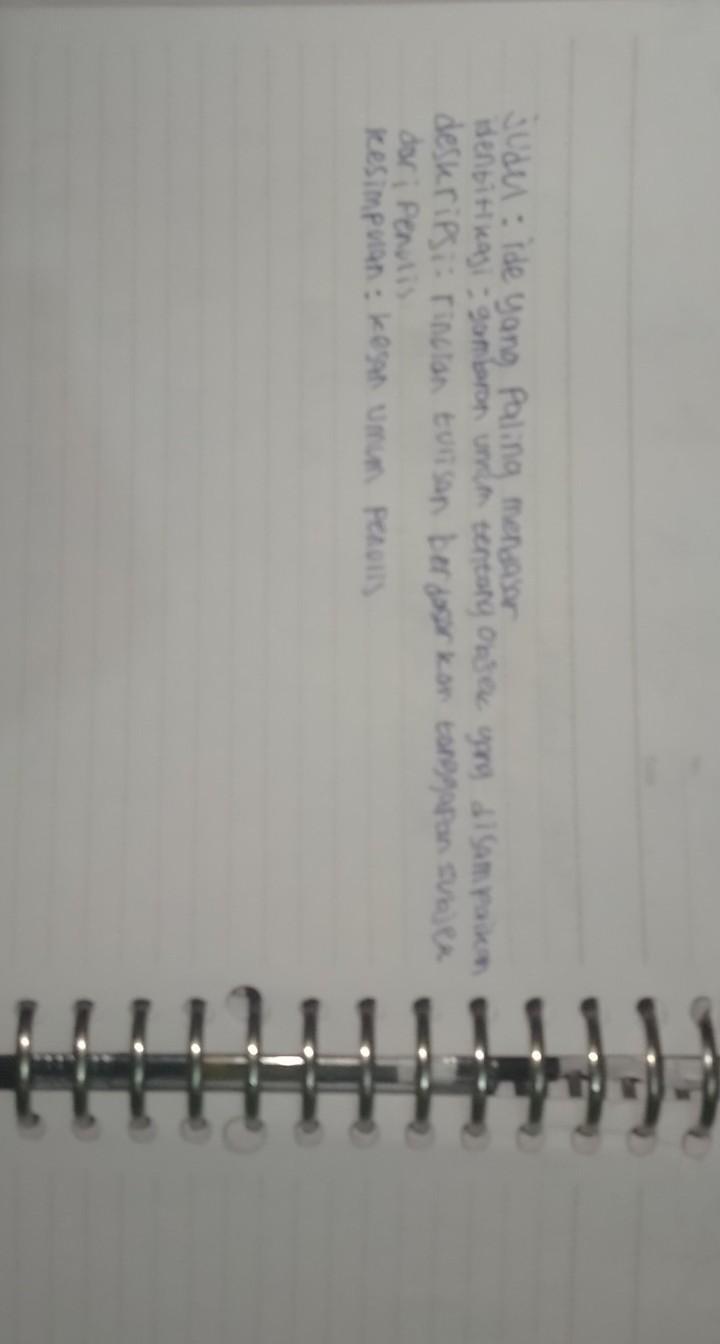 judul : ide yang Paling mendasar
identifikasi : gambaran umum tentang objek yang disampaikan
deskripsi : rincian tulisan berdasarkan tanggapan subjek
dari Penulis
kesimpulan : kesan umum Penulis